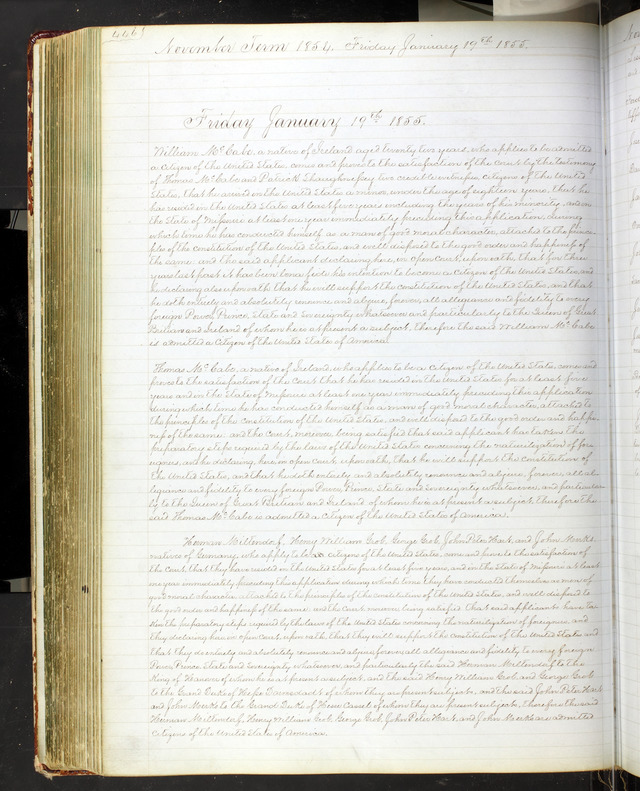 446
November Term 1854. Friday January 19th 1855.
Friday January 19th 1855.
William McCabe, a native of Ireland aged twenty two years, who applies to be admitted
a citizen of the United States, comes and proves to the satisfaction of the court by the testimony
of Thomas McCabe and Patrick Shaughnessy two credible witnesses, citizens of the United
States, that he arrived in the United States a minor under the age of eighteen years, that he
has resided in the United States at least five years including the years of his minority, and in
the State of Missouri at least one year immediately preceding this application, during
which time he has conducted himself as a man of good moral character, attached to the princi-
ples of the constitution of the United States, and well disposed to the good order and happiness of
the same: and the said applicant declaring, here, in open court, upon oath, that for three
years last past it has been bona fide his intention to become a citizen of the United States, and
he declaring also upon oath that he will support the constitution of the United States, and that
he doth entirely and absolutely renounce and abjure, forever, all allegiance and fidelity to every
foreign Power, Prince, State and Sovereignty whatsoever and particularly to the Queen of Great
Britain and Ireland of whom he is at present a subject, therefore the said William McCabe
is admitted a Citizen of the United States of America.
Thomas McCabe, a native of Ireland who applies to be a citizen of the United States, comes and
proves to the satisfaction of the Court that he has resided in the United States for at least five
years and in the State of Missouri at least one year immediately preceding this application
during which time he has conducted himself as a man of good moral character, attached to
the principles of the constitution of the United States, and well disposed to the good order and happi-
ness of the same: and the Court, moreover, being satisfied that said applicant has taken the
preparatory steps required by the laws of the United States concerning the naturalization of for-
eigners, and he declaring, here, in open court, upon oath, that he will support the Constitution of
the United States, and that he doth entirely and absolutely renounce and abjure, forever, all al-
legiance and fidelity to every foreign Power, Prince, State and Sovereignty whatsoever, and particular-
ly to the Queen of Great Britain and Ireland of whom he is at present a subject, therefore the
said Thomas McCabe is admitted a Citizen of the United States of America.
Herman Millendorf, Henry William Grob, George Grob, John Peter Hart, and John Merks
natives of Germany, who apply to be citizens of the United States, come and prove to the satisfaction of
the Court, that they have resided in the United States for at least five years, and in the State of Missouri at least
one year immediately preceding this application during which time they have conducted themselves as men of
good moral character attached to the principles of the constitution of the United States, and well disposed to
the good order and happiness of the same: and the Court, moreover, being satisfied that said applicants have ta-
ken the preparatory steps required by the laws of the United States concerning the naturalization of foreigners, and
they declaring here in open court, upon oath, that they will support the Constitution of the United States and
that they do entirely and absolutely renounce and abjure forever all allegiance and fidelity to every foreign
Power, Prince State and Sovereignty whatsoever, and particularly the said Herman Millendorf to the
King of Hanover of whom he is at present a subject, and the said Henry William Grob, and George Grob
to the Grand Duke of Hesse Darmstadt of whom they are present subjects, and the said John Peter Hart
and John Merks to the Grand Duke of Hesse Cassel of whom they are present subjects, therefore the said
Herman Millendorf, Henry William Grob, George Grob, John Peter Hart, and John Merks are admitted
citizens of the United States of America.